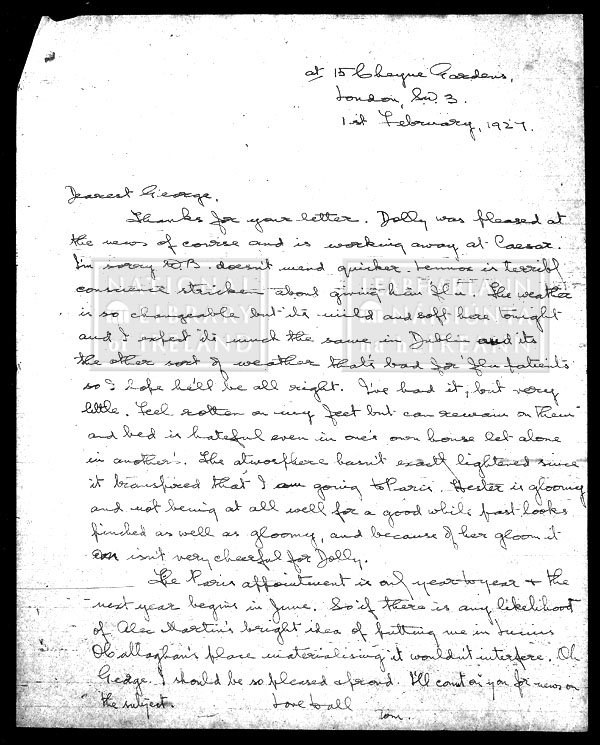 at 15 Cheyne Gardens,
London, S.W. 3.
1st February, 1927.
Dearest George,
Thanks for your letter. Dolly was pleased at
the news of course and is working away at Caesar.
I'm sorry W.B. doesn't mend quicker. Lennox is terribly
conscience stricken about giving him flu. The weather
is so changeable but it's mild and soft here tonight
and I expect it's much the same in Dublin and its
the other sort of weather that's bad for flu patients
so I hope he'll be all right. I've had it, but very
little. Feel rotten on my feet but can remain on them
and bed is hateful even in one's own house let alone
in another's. The atmosphere hasn't exactly lightened since
it transpired that I am going to Paris. Hester is gloomy
and not being at all well for a good while past looks
pinched as well as gloomy, and because of her gloom it
isn't very cheerful for Dolly.
The Paris appointment is only year to year + the
next year begins in June. So if there is any likelihood
of Alec Martin's bright idea of putting me in Lucius
O'Callaghan's place materialising it wouldn't interfere. Oh
George, I should be so pleased. I'll count on you for news on
the subject.
Love to all
Tom.
NATIONAL
LIBRARY
of IRELAND
LEABHARLANN
NÁISIÚNTA
na hÉIREANN